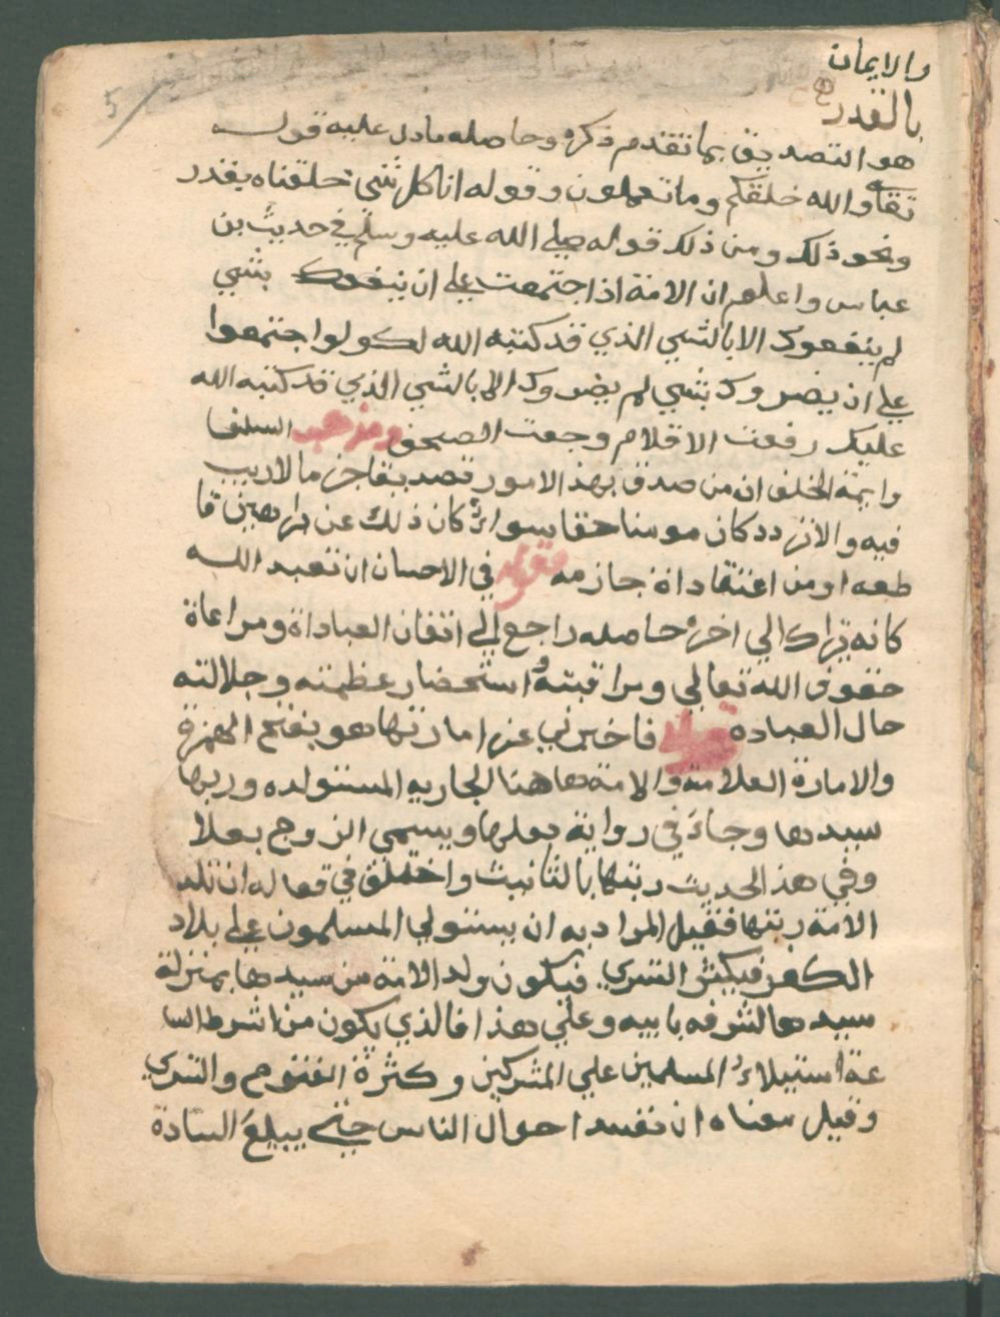 والايمان
بالقدر
5
هو التصديق بما تقدم ذكره وحاصله مادل عليه قول
تعا والله خلقكم وما تعملون وقوله انا كل شي خلقناه بقدر
ونحو ذلك ومن ذلك قوله صلى الله عليه وسلم في حديث بن
عباس واعلم ان الامة اذا جتمعت علي ان ينفعوك بشي
لم ينفعوك الا بالشي الذي قد كتبه الله لك ولوا جتمعوا
علي ان يضروك بشي لم يضروك الا بالشي الذي قد كتبه الله
عليك رفعت الاقلام وجفت الصحف ومذهب السلف
وايمة الخلف ان من صدق بهذ الامور تصديقا جزما لاريب
فيه والاتردد كان مومنا حقا سوا كان ذلك عن براهين قا
طعه او من اعتقاداة جازمه وقوله في الاحسان ان تعبد الله
كانه تراك الي اخره حاصله راجع الى اتقان العباداة ومراعاة
حقوق الله تعالي ومراقبته واستحضار عظمته وجلالته
حال العباده قوله فاخبرني عن اماراتها هو بفتح الهمزة
والامارة العلامة والامة هاهنا الجاريه المستولده وربها
سيدها وجاء في رواية بعلها ويسمي الزوج بعلا
وفي هذ الحديث ربتها بالتانيث واختلف في قوله ان تلد
الامة ربتها فقيل المراد به ان يستولي المسلمون علي بلاد
الكفر فيكثر التسري فيكون ولد الامة من سيدها بمنزلة
سيدها لشرفه بابيه وعلي هذا فالذي يكون من اشرط السا
عة استيلاء المسلمين علي المشركين وكثرة الفتوح والتسري
وقيل معناه ان تفسد احوال الناس حتى يبيع السادة